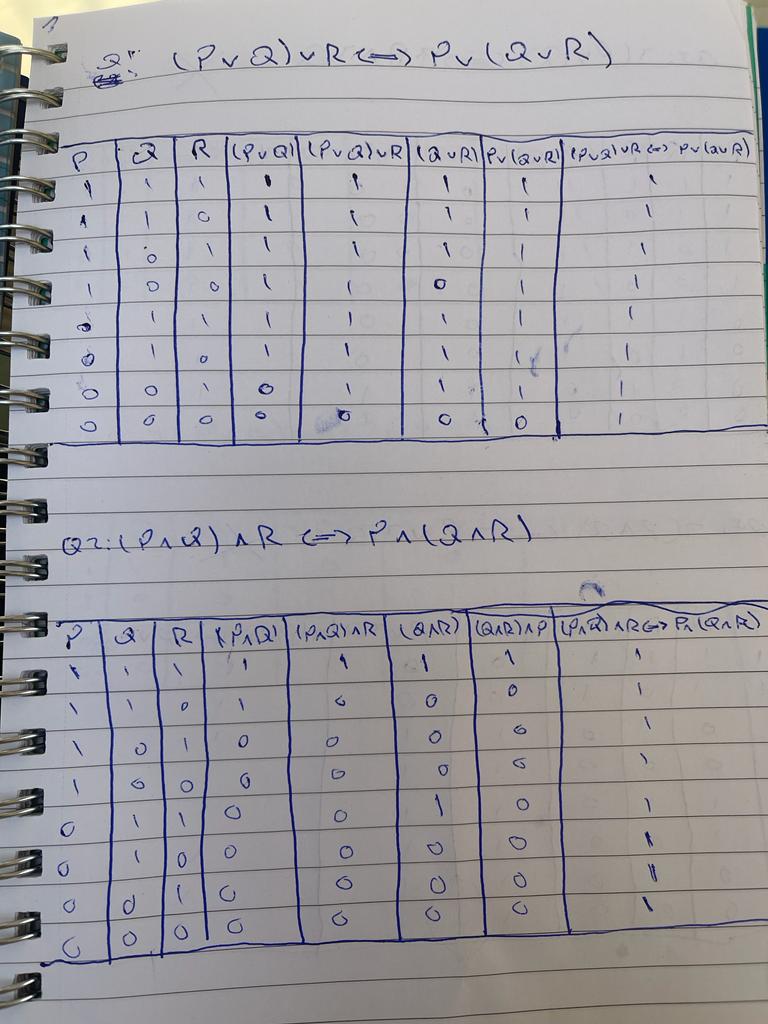 Q1: (P∨Q)∨R ⟺ P∨(Q∨R)
P Q R (P∨Q) (P∨Q)∨R (Q∨R) P∨(Q∨R) (P∨Q)∨R ⟺ P∨(Q∨R)
1 1 1 1 1 1 1 1
1 1 0 1 1 1 1 1
1 0 1 1 1 1 1 1
1 0 0 1 1 0 1 1
0 1 1 1 1 1 1 1
0 1 0 1 1 1 1 1
0 0 1 0 1 1 1 1
0 0 0 0 0 0 0 1
Q2: (P∧Q)∧R ⟺ P∧(Q∧R)
P Q R (P∧Q) (P∧Q)∧R (Q∧R) (Q∧R)∧P (P∧Q)∧R ⟺ P∧(Q∧R)
1 1 1 1 1 1 1 1
1 1 0 1 0 0 0 1
1 0 1 0 0 0 0 1
1 0 0 0 0 0 0 1
0 1 1 0 0 1 0 1
0 1 0 0 0 0 0 1
0 0 1 0 0 0 0 1
0 0 0 0 0 0 0 1